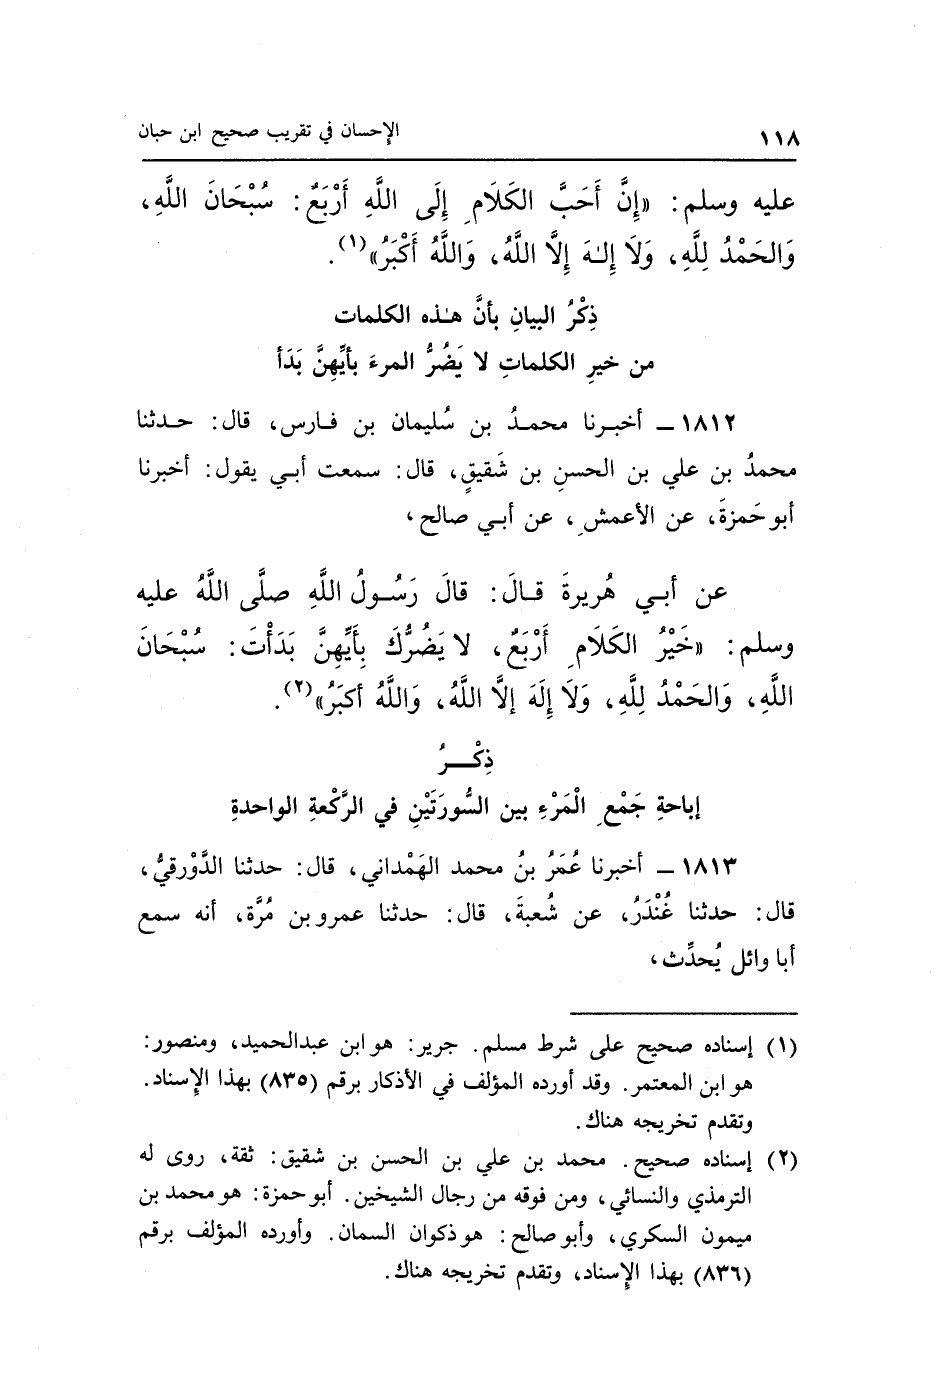 ١١٨ الإحسان في تقريب صحيح ابن حبان
عليه وسلم: «إِنَّ أَحَبَّ الكَلَامِ إِلَى اللَّهِ أَرْبَعٌ: سُبْحَانَ اللَّهِ،
وَالحَمْدُ لِلَّهِ، وَلَا إِلـٰهَ إِلَّا اللَّهُ، وَاللَّهُ أَكْبَرُ»(١).
ذِكْرُ البيانِ بأنَّ هـٰذه الكلمات
من خيرِ الكلماتِ لا يَضُرُّ المرءَ بأيِّهِنَّ بَدَأ
١٨١٢ ـ أخبرنا محمدُ بن سُليمان بن فارس، قال: حدثنا
محمدُ بن علي بن الحسنِ بن شَقيقٍ، قال: سمعت أبي يقول: أخبرنا
أبو حَمزةَ، عن الأعمشِ، عن أبي صالح،
عن أبي هُريرةَ قالَ: قالَ رَسُولُ اللَّهِ صلَّى اللَّهُ عليه
وسلم: «خَيْرُ الكَلَامِ أَرْبَعٌ، لا يَضُرُّكَ بِأَيِّهِنَّ بَدَأْتَ: سُبْحَانَ
اللَّهِ، وَالحَمْدُ لِلَّهِ، وَلَا إِلَهَ إلَّا اللَّهُ، وَاللَّهُ أكبَرُ»(٢).
ذِكْـــرُ
إباحةِ جَمْعِ الْمَرْءِ بين السُّورَتَيْنِ في الرَّكْعةِ الواحدةِ
١٨١٣ ـ أخبرنا عُمَرُ بنُ محمد الهَمْداني، قال: حدثنا الدَّوْرقيُّ،
قال: حدثنا غُنْدَرُ، عن شُعبةَ، قال: حدثنا عمرو بن مُرَّة، أنه سمع
أبا وائل يُحدِّث،
(١) إسناده صحيح على شرط مسلم. جرير: هو ابن عبدالحميد، ومنصور:
هو ابن المعتمر. وقد أورده المؤلف في الأذكار برقم (٨٣٥) بهذا الإسناد.
وتقدم تخريجه هناك.
(٢) إسناده صحيح. محمد بن علي بن الحسن بن شقيق: ثقة، روى له
الترمذي والنسائي، ومن فوقه من رجال الشيخين. أبو حمزة: هو محمد بن
ميمون السكري، وأبو صالح: هو ذكوان السمان. وأورده المؤلف برقم
(٨٣٦) بهذا الإسناد، وتقدم تخريجه هناك.